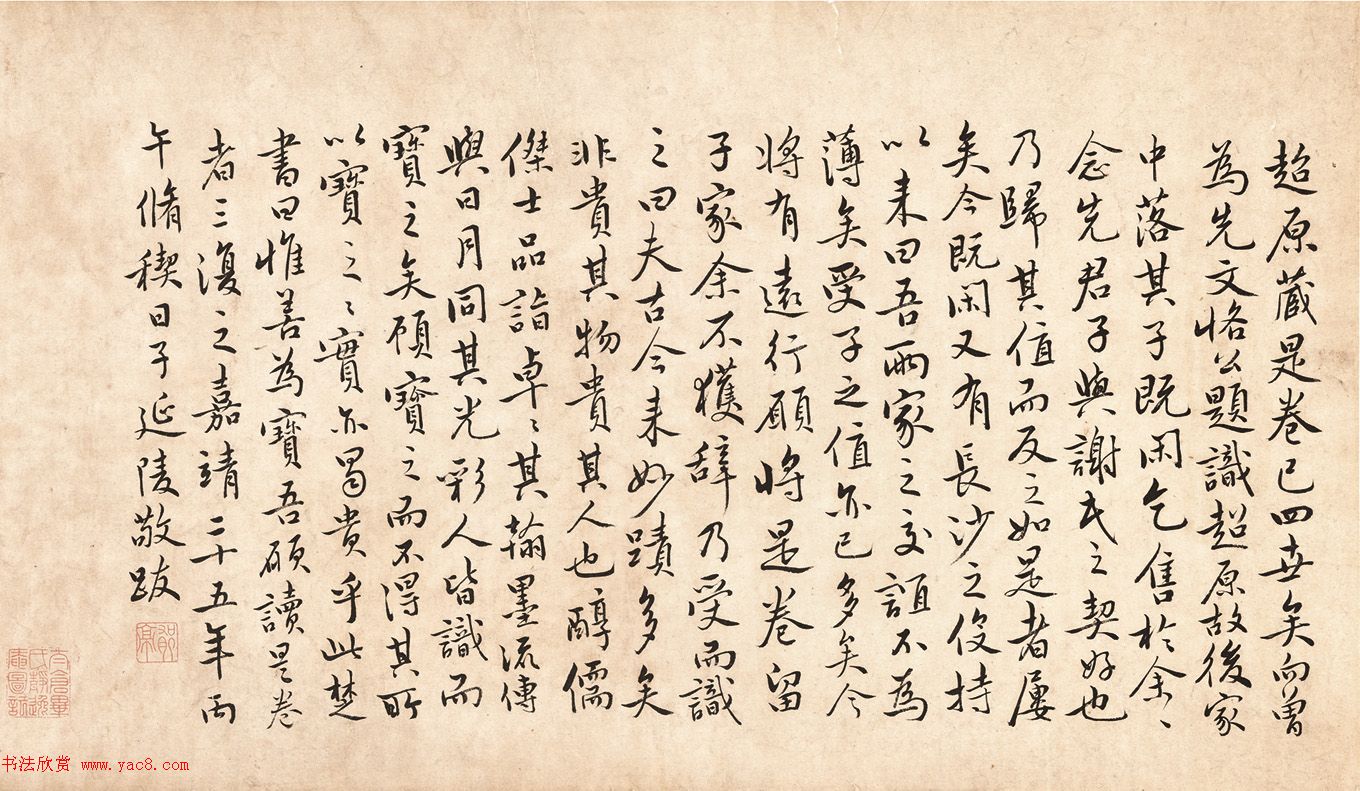 超原藏是卷已四世矣向曾
為先文恪公題識超原故後家
中落其子既閑乞售於余〻
念先君子與謝氏之契好也
乃歸其值而反之如是者屢
矣今既閑又有長沙之役持
以来曰吾兩家之交誼不為
薄矣受子之值亦已多矣今
將有遠行願將是卷留
子家余不獲辞乃受而識
之曰夫古今来妙蹟多矣
非貴其物貴其人也醇儒
傑士品詣卓〻其翰墨流傳
與日月同其光彩人皆識而
寶之矣顧寶之而不得其所
以寶之〻實亦曷貴乎此楚
書曰惟善為寶吾願讀是卷
者三復之嘉靖二十五年丙
午脩稧日子延陵敬跋
书法欣赏 www.yac8.com